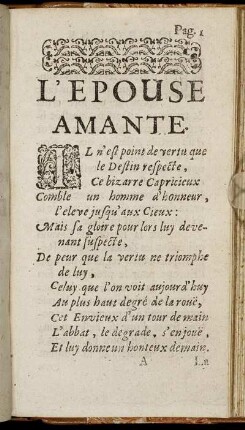 Pag. 1
L'EPOUSE
AMANTE.
IL n'est point de vertu que
le Destin respecte,
Ce bizarre Capricieux
Comble un homme d'honneur,
l'eleve jusqu'aux Cieux:
Mais sa gloire pour lors luy deve-
nant suspecte,
De peur que la vertu ne triomphe
de luy,
Celuy que l'on voit aujourd'huy
Au plus haut degré de la rouë,
Cet Envieux d'un tour de main
L'abbat, le degrade, s'enjouë,
Et luy donne un honteux demain.
A